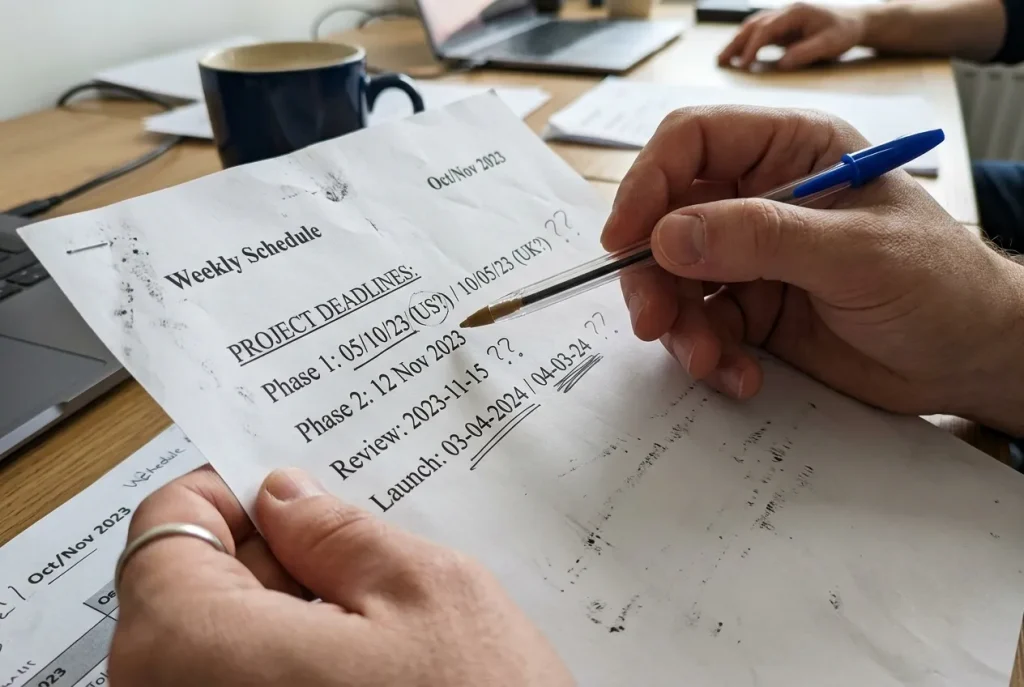 Oct/Nov 2023
Weekly Schedule
PROJECT DEADLINES:
Phase 1: 05/10/23 (US?) / 10/05/23 (UK?) ??
Phase 2: 12 Nov 2023
Review: 2023-11-15 ??
Launch: 03-04-2024 / 04-03-24 ??
Oct/Nov 2023